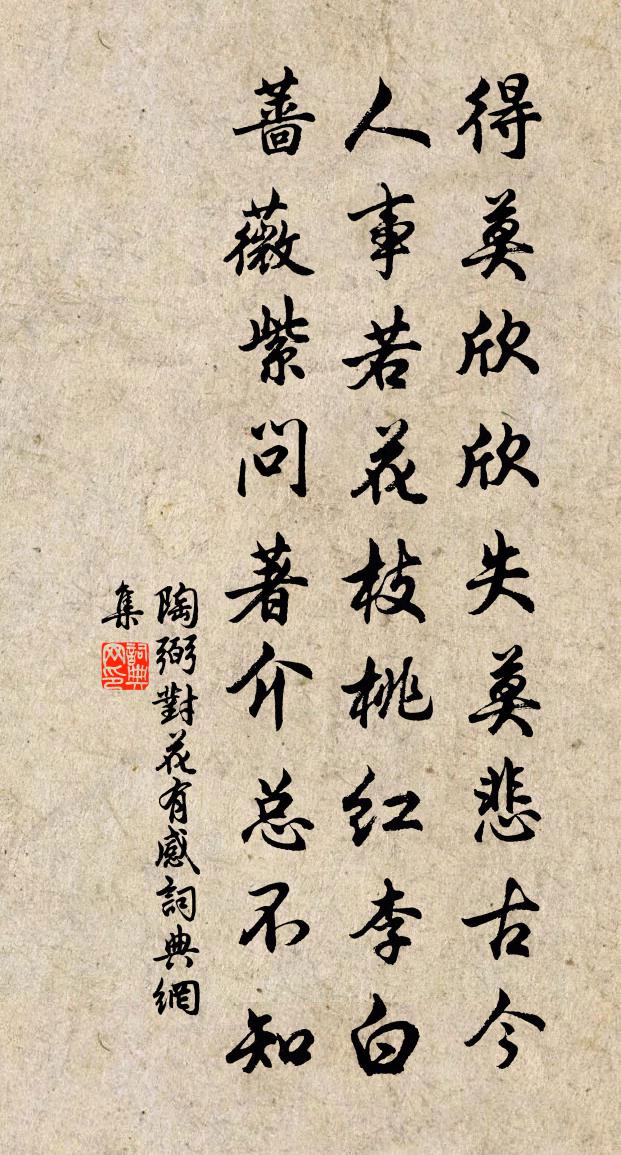 得莫欣欣失莫悲古今
人事若花枝桃红李白
蔷薇紫问著介总不知
陶弼對花有感詞典網
集
詞典
网印